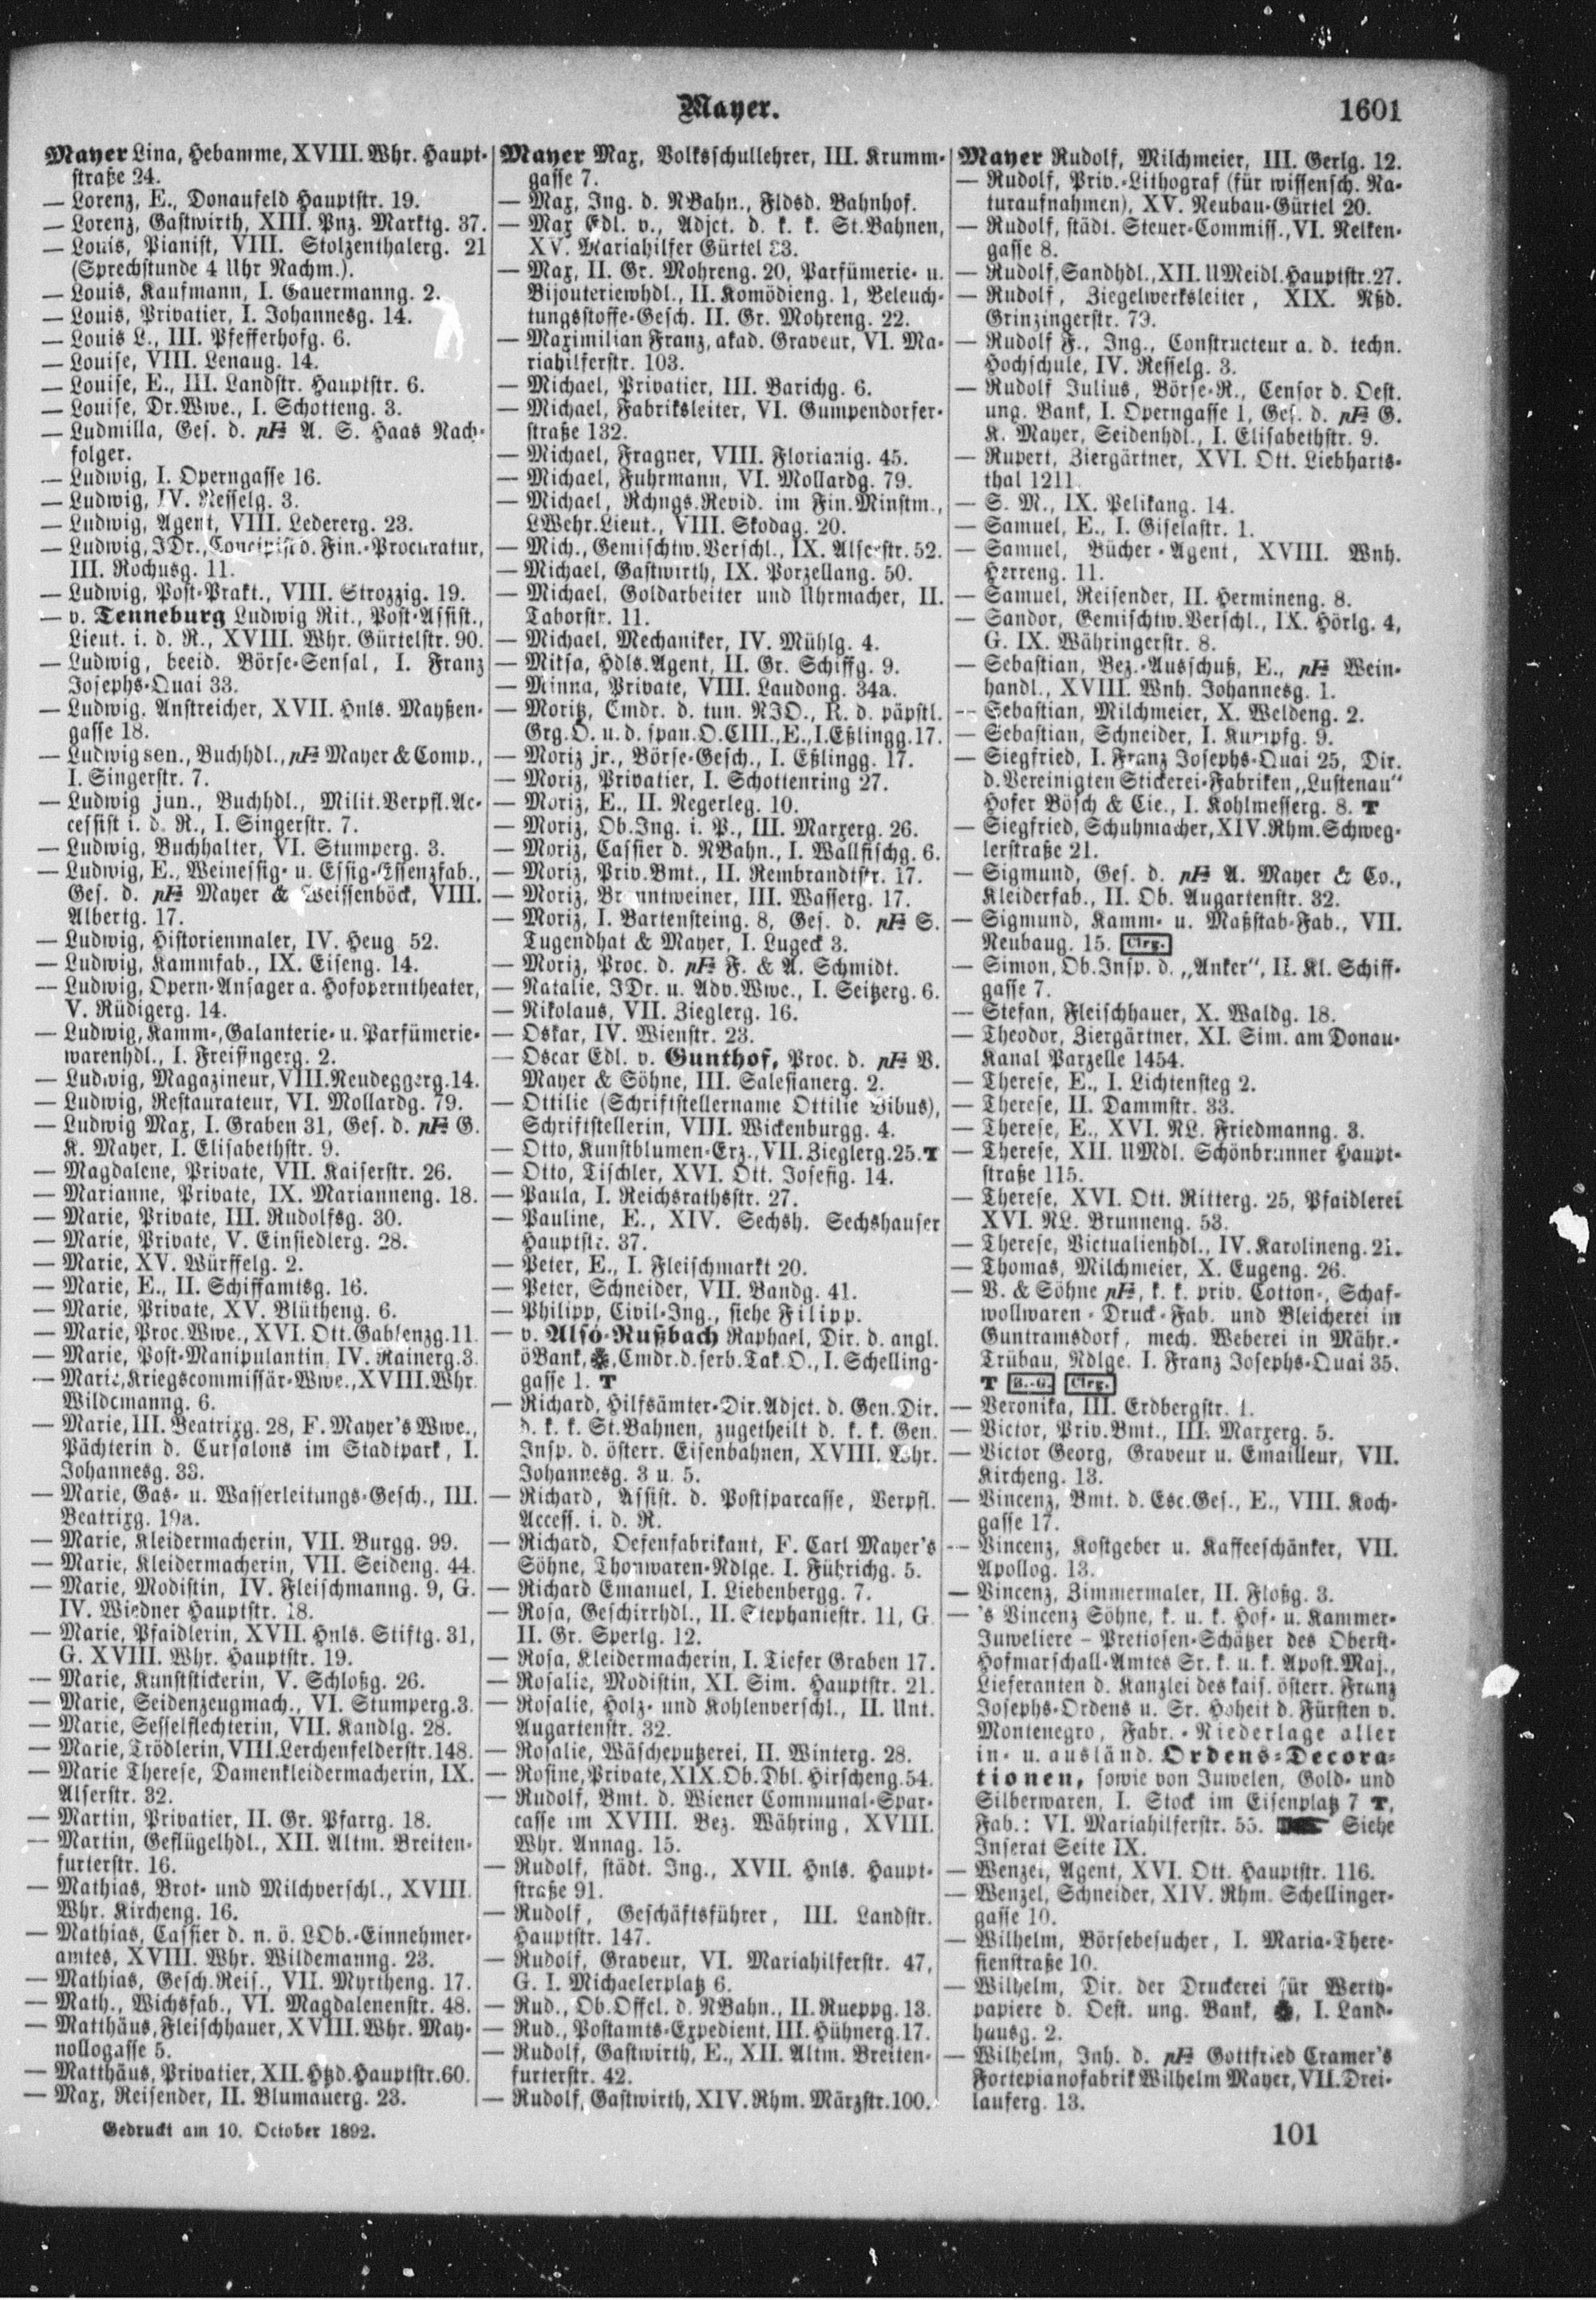 Mayer.
1601
Mayer Lina, Hebamme, XVIII. Whr. Haupt-
straße 24.
— Lorenz, E., Donaufeld Hauptstr. 19.
— Lorenz, Gastwirth, XIII. Pnz. Marktg. 37.
— Louis, Pianist, VIII. Stolzenthalerg. 21
(Sprechstunde 4 Uhr Nachm.).
— Louis, Kaufmann, I. Gauermanng. 2.
— Louis, Privatier, I. Johannesg. 14.
— Louis L., III. Pfefferhofg. 6.
— Louise, VIII. Lenaug. 14.
— Louise, E., III. Landstr. Hauptstr. 6.
— Louise, Dr.Wwe., I. Schotteng. 3.
— Ludmilla, Ges. d. pF: A. S. Haas Nach-
folger.
— Ludwig, I. Operngasse 16.
— Ludwig, IV. Resselg. 3.
— Ludwig, Agent, VIII. Ledererg. 23.
— Ludwig, JDr., Concipist d. Fin.-Procuratur,
III. Rochusg. 11.
— Ludwig, Post-Prakt., VIII. Strozzig. 19.
— v. Tenneburg Ludwig Rit., Post-Assist.,
Lieut. i. d. R., XVIII. Whr. Gürtelstr. 90.
— Ludwig, beeid. Börse-Sensal, I. Franz
Josephs-Quai 33.
— Ludwig. Anstreicher, XVII. Hnls. Mayßen-
gasse 18.
— Ludwig sen., Buchhdl., pF: Mayer & Comp.,
I. Singerstr. 7.
— Ludwig jun., Buchhdl., Milit.Verpfl.Ac-
cessist i. d. R., I. Singerstr. 7.
— Ludwig, Buchhalter, VI. Stumperg. 3.
— Ludwig, E., Weinessig- u. Essig-Essenzfab.,
Ges. d. pF: Mayer & Weissenböck, VIII.
Albertg. 17.
— Ludwig, Historienmaler, IV. Heug 52.
— Ludwig, Kammfab., IX. Eiseng. 14.
— Ludwig, Opern-Ansager a. Hofoperntheater,
V. Rüdigerg. 14.
— Ludwig, Kamm-, Galanterie- u. Parfümerie-
warenhdl., I. Freisingerg. 2.
— Ludwig, Magazineur, VIII. Neudeggerg. 14.
— Ludwig, Restaurateur, VI. Mollardg. 79.
— Ludwig Max, I. Graben 31, Ges. d. pF: G.
K. Mayer, I. Elisabethstr. 9.
— Magdalene, Private, VII. Kaiserstr. 26.
— Marianne, Private, IX. Marianneng. 18.
— Marie, Private, III. Rudolfsg. 30.
— Marie, Private, V. Einsiedlerg. 28.
— Marie, XV. Würffelg. 2.
— Marie, E., II. Schiffamtsg. 16.
— Marie, Private, XV. Blütheng. 6.
— Marie, Proc.Wwe., XVI. Ott. Gablenzg. 11.
— Marie, Post-Manipulantin, IV. Rainerg. 3.
— Marie, Kriegscommissär-Wwe., XVIII. Whr.
Wildemanng. 6.
— Marie, III. Beatrixg. 28, F. Mayer's Wwe.,
Pächterin d. Cursalons im Stadtpark, I.
Johannesg. 33.
— Marie, Gas- u. Wasserleitungs-Gesch., III.
Beatrixg. 19a.
— Marie, Kleidermacherin, VII. Burgg. 99.
— Marie, Kleidermacherin, VII. Seideng. 44.
— Marie, Modistin, IV. Fleischmanng. 9, G.
IV. Wiedner Hauptstr. 18.
— Marie, Pfaidlerin, XVII. Hnls. Stiftg. 31,
G. XVIII. Whr. Hauptstr. 19.
— Marie, Kunststickerin, V. Schloßg. 26.
— Marie, Seidenzeugmach., VI. Stumperg. 3.
— Marie, Sesselflechterin, VII. Kandlg. 28.
— Marie, Trödlerin, VIII. Lerchenfelderstr. 148.
— Marie Therese, Damenkleidermacherin, IX.
Alserstr. 32.
— Martin, Privatier, II. Gr. Pfarrg. 18.
— Martin, Geflügelhdl., XII. Altm. Breiten-
furterstr. 16.
— Mathias, Brot- und Milchverschl., XVIII.
Whr. Kircheng. 16.
— Mathias, Cassier d. n. ö. LOb.-Einnehmer-
amtes, XVIII. Whr. Wildemanng. 23.
— Mathias, Gesch.Reis., VII. Myrtheng. 17.
— Math., Wichsfab., VI. Magdalenenstr. 48.
— Matthäus, Fleischhauer, XVIII. Whr. May-
nollogasse 5.
— Matthäus, Privatier, XII. Htzd. Hauptstr. 60.
— Max, Reisender, II. Blumauerg. 23.
Mayer Max, Volksschullehrer, III. Krumm-
gasse 7.
— Max, Ing. d. NBahn., Fldsd. Bahnhof.
— Max Edl. v., Adjct. d. k. k. St.Bahnen,
XV. Mariahilfer Gürtel 33.
— Max, II. Gr. Mohreng. 20, Parfümerie- u.
Bijouteriewhdl., II. Komödieng. 1, Beleuch-
tungsstoffe-Gesch. II. Gr. Mohreng. 22.
— Maximilian Franz, akad. Graveur, VI. Ma-
riahilferstr. 103.
— Michael, Privatier, III. Barichg. 6.
— Michael, Fabriksleiter, VI. Gumpendorfer-
straße 132.
— Michael, Fragner, VIII. Florianig. 45.
— Michael, Fuhrmann, VI. Mollardg. 79.
— Michael, Rchngs.Revid. im Fin.Minstm.,
LWehr.Lieut., VIII. Skodag. 20.
— Mich., Gemischtw.Verschl., IX. Alserstr. 52.
— Michael, Gastwirth, IX. Porzellang. 50.
— Michael, Goldarbeiter und Uhrmacher, II.
Taborstr. 11.
— Michael, Mechaniker, IV. Mühlg. 4.
— Mitsa, Hdls.Agent, II. Gr. Schiffg. 9.
— Minna, Private, VIII. Laudong. 34a.
— Moritz, Cmdr. d. tun. NJO., R. d. päpstl.
Grg.O. u. d. span. O. CIII., E., I. Eßlingg. 17.
— Moriz jr., Börse-Gesch., I. Eßlingg. 17.
— Moriz, Privatier, I. Schottenring 27.
— Moriz, E., II. Negerleg. 10.
— Moriz, Ob.Ing. i. P., III. Marxerg. 26.
— Moriz, Cassier d. NBahn., I. Wallfischg. 6.
— Moriz, Priv.Bmt., II. Rembrandtstr. 17.
— Moriz, Branntweiner, III. Wasserg. 17.
— Moriz, I. Bartensteing. 8, Ges. d. pF: S.
Tugendhat & Mayer, I. Lugeck 3.
— Moriz, Proc. d. pF: F. & A. Schmidt.
— Natalie, JDr. u. Adv.Wwe., I. Seitzerg. 6.
— Nikolaus, VII. Zieglerg. 16.
— Oskar, IV. Wienstr. 23.
— Oscar Edl. v. Gunthof, Proc. d. pF: V.
Mayer & Söhne, III. Salesianerg. 2.
— Ottilie (Schriftstellername Ottilie Bibus),
Schriftstellerin, VIII. Wickenburgg. 4.
— Otto, Kunstblumen-Erz., VII. Zieglerg. 25. T
— Otto, Tischler, XVI. Ott. Josefig. 14.
— Paula, I. Reichsrathsstr. 27.
— Pauline, E., XIV. Sechsh. Sechshauser
Hauptstr. 37.
— Peter, E., I. Fleischmarkt 20.
— Peter, Schneider, VII. Bandg. 41.
— Philipp, Civil-Ing., siehe Filipp.
— v. Alsó-Rußbach Raphael, Dir. d. angl.
öBank, Cmdr. d. serb. Tak. O., I. Schelling-
gasse 1. T
— Richard, Hilfsämter-Dir.Adjct. d. Gen.Dir.
d. k. k. St.Bahnen, zugetheilt d. k. k. Gen.
Insp. d. österr. Eisenbahnen, XVIII. Whr.
Johannesg. 3 u. 5.
— Richard, Assist. d. Postsparcasse, Verpfl.
Access. i. d. R.
— Richard, Oefenfabrikant, F. Carl Mayer's
Söhne, Thonwaren-Ndlge. I. Führichg. 5.
— Richard Emanuel, I. Liebenbergg. 7.
— Rosa, Geschirrhdl., II. Stephaniestr. 11, G.
II. Gr. Sperlg. 12.
— Rosa, Kleidermacherin, I. Tiefer Graben 17.
— Rosalie, Modistin, XI. Sim. Hauptstr. 21.
— Rosalie, Holz- und Kohlenverschl., II. Unt.
Augartenstr. 32.
— Rosalie, Wäscheputzerei, II. Winterg. 28.
— Rosine, Private, XIX. Ob. Dbl. Hirscheng. 54.
— Rudolf, Bmt. d. Wiener Communal-Spar-
casse im XVIII. Bez. Währing, XVIII.
Whr. Annag. 15.
— Rudolf, städt. Ing., XVII. Hnls. Haupt-
straße 91.
— Rudolf, Geschäftsführer, III. Landstr.
Hauptstr. 147.
— Rudolf, Graveur, VI. Mariahilferstr. 47,
G. I. Michaelerplatz 6.
— Rud., Ob.Offcl. d. NBahn., II. Rueppg. 13.
— Rud., Postamts-Expedient, III. Hühnerg. 17.
— Rudolf, Gastwirth, E., XII. Altm. Breiten-
furterstr. 42.
— Rudolf, Gastwirth, XIV. Rhm. Märzstr. 100.
Mayer Rudolf, Milchmeier, III. Gerlg. 12.
— Rudolf, Priv.-Lithograf (für wissensch. Na-
turaufnahmen), XV. Neubau-Gürtel 20.
— Rudolf, städt. Steuer-Commiss., VI. Nelken-
gasse 8.
— Rudolf, Sandhdl., XII. UMeidl. Hauptstr. 27.
— Rudolf, Ziegelwerksleiter, XIX. Nßd.
Grinzingerstr. 79.
— Rudolf F., Ing., Constructeur a. d. techn.
Hochschule, IV. Resselg. 3.
— Rudolf Julius, Börse-R., Censor d. Oest.
ung. Bank, I. Operngasse 1, Ges. d. pF: G.
K. Mayer, Seidenhdl., I. Elisabethstr. 9.
— Rupert, Ziergärtner, XVI. Ott. Liebharts-
thal 1211.
— S. M., IX. Pelikang. 14.
— Samuel, E., I. Giselastr. 1.
— Samuel, Bücher-Agent, XVIII. Wnh.
Herreng. 11.
— Samuel, Reisender, II. Hermineng. 8.
— Sandor, Gemischtw.Verschl., IX. Hörlg. 4,
G. IX. Währingerstr. 8.
— Sebastian, Bez.-Ausschuß, E., pF: Wein-
handl., XVIII. Wnh. Johannesg. 1.
— Sebastian, Milchmeier, X. Weldeng. 2.
— Sebastian, Schneider, I. Kumpfg. 9.
— Siegfried, I. Franz Josephs-Quai 25, Dir.
d. Vereinigten Stickerei-Fabriken „Lustenau“
Hofer Bösch & Cie., I. Kohlmesserg. 8. T
— Siegfried, Schuhmacher, XIV. Rhm. Schweg-
lerstraße 21.
— Sigmund, Ges. d. pF: A. Mayer & Co.,
Kleiderfab., II. Ob. Augartenstr. 32.
— Sigmund, Kamm- u. Maßstab-Fab., VII.
Neubaug. 15. Clrg.
— Simon, Ob.Insp. d. „Anker“, II. Kl. Schiff-
gasse 7.
— Stefan, Fleischhauer, X. Waldg. 18.
— Theodor, Ziergärtner, XI. Sim. am Donau-
Kanal Parzelle 1454.
— Therese, E., I. Lichtensteg 2.
— Therese, II. Dammstr. 33.
— Therese, E., XVI. NL. Friedmanng. 3.
— Therese, XII. UMdl. Schönbrunner Haupt-
straße 115.
— Therese, XVI. Ott. Ritterg. 25, Pfaidlerei
XVI. NL. Brunneng. 53.
— Therese, Victualienhdl., IV. Karolineng. 21.
— Thomas, Milchmeier, X. Eugeng. 26.
— V. & Söhne pF:, k. k. priv. Cotton-, Schaf-
wollwaren-Druck-Fab. und Bleicherei in
Guntramsdorf, mech. Weberei in Mähr.-
Trübau, Ndlge. I. Franz Josephs-Quai 35.
T B.-G. Clrg.
— Veronika, III. Erdbergstr. 1.
— Victor, Priv.Bmt., III. Marxerg. 5.
— Victor Georg, Graveur u. Emailleur, VII.
Kircheng. 13.
— Vincenz, Bmt. d. Esc.Ges., E., VIII. Koch-
gasse 17.
— Vincenz, Kostgeber u. Kaffeeschänker, VII.
Apollog. 13.
— Vincenz, Zimmermaler, II. Floßg. 3.
— 's Vincenz Söhne, k. u. k. Hof- u. Kammer-
Juweliere – Pretiosen-Schätzer des Oberst-
Hofmarschall-Amtes Sr. k. u. k. Apost. Maj.,
Lieferanten d. Kanzlei des kais. österr. Franz
Josephs-Ordens u. Sr. Hoheit d. Fürsten v.
Montenegro, Fabr.-Niederlage aller
in- u. ausländ. Ordens-Decora-
tionen, sowie von Juwelen, Gold- und
Silberwaren, I. Stock im Eisenplatz 7 T,
Fab.: VI. Mariahilferstr. 55. Siehe
Inserat Seite IX.
— Wenzel, Agent, XVI. Ott. Hauptstr. 116.
— Wenzel, Schneider, XIV. Rhm. Schellinger-
gasse 10.
— Wilhelm, Börsebesucher, I. Maria-There-
sienstraße 10.
— Wilhelm, Dir. der Druckerei für Werth-
papiere d. Oest. ung. Bank, I. Land-
hausg. 2.
— Wilhelm, Inh. d. pF: Gottfried Cramer's
Fortepianofabrik Wilhelm Mayer, VII. Drei-
lauferg. 13.
Gedruckt am 10. October 1892.
101